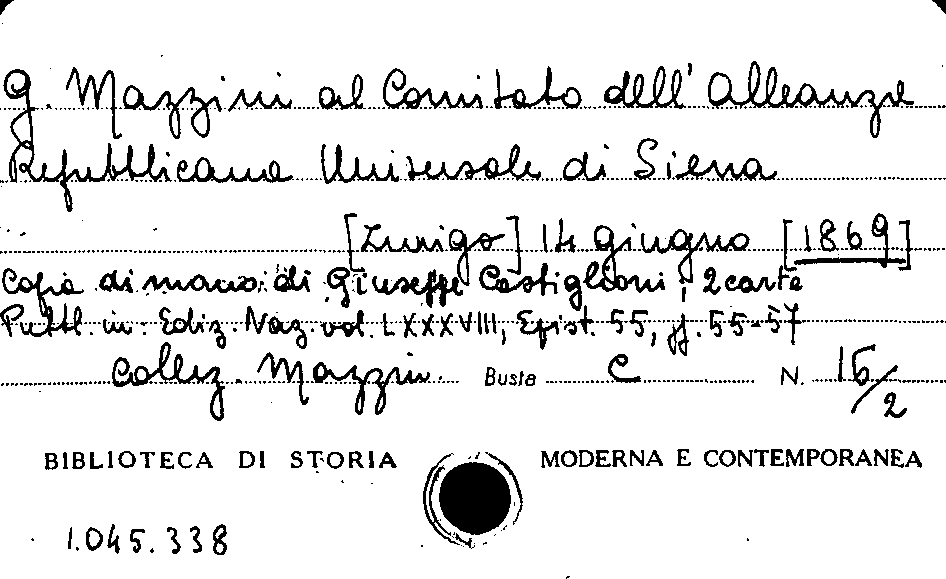 G. Mazzini al Comitato dell'Alleanza
Repubblicana Universale di Siena
[Zurigo] 14 giugno [1869]
Copia di mano di Giuseppe Castiglioni; 2 carte
Pubbl. in: Ediz. Naz. vol. LXXXVIII, Epist. 55, pp. 55-57
Collez. Mazzini Busta C N. 16/2
BIBLIOTECA DI STORIA MODERNA E CONTEMPORANEA
1.045.338